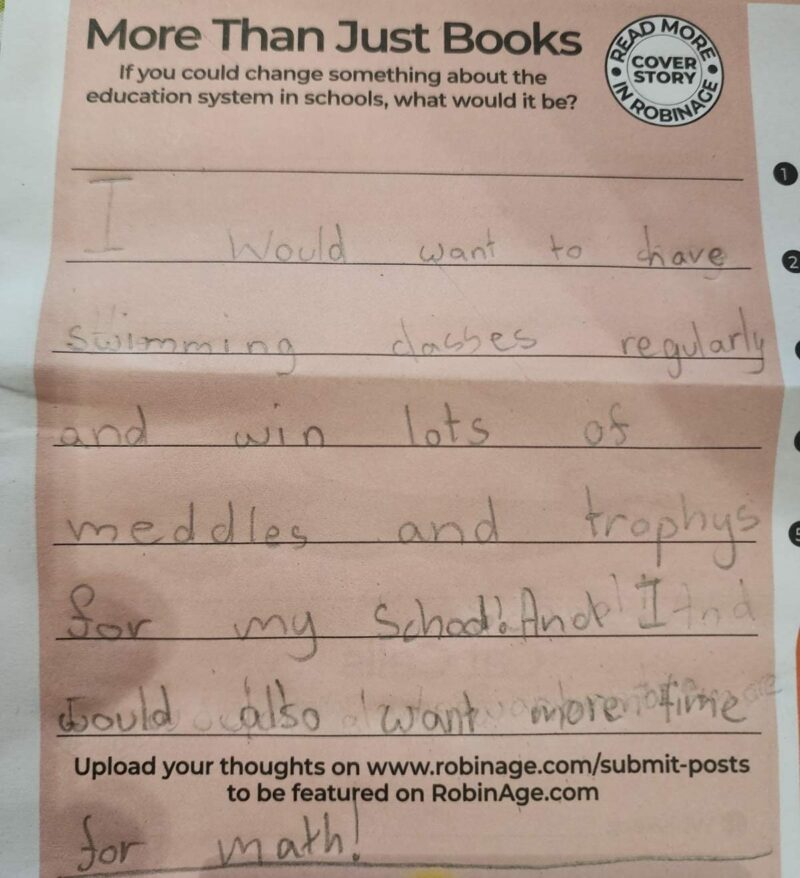 More Than Just Books
If you could change something about the
education system in schools, what would it be?
READ MORE
COVER
STORY
IN ROBINAGE
I would want to have
swimming classes regularly
and win lots of
meddles and trophys
for my school! And I
would also want more time
Upload your thoughts on www.robinage.com/submit-posts
to be featured on RobinAge.com
for math!
1
2
5